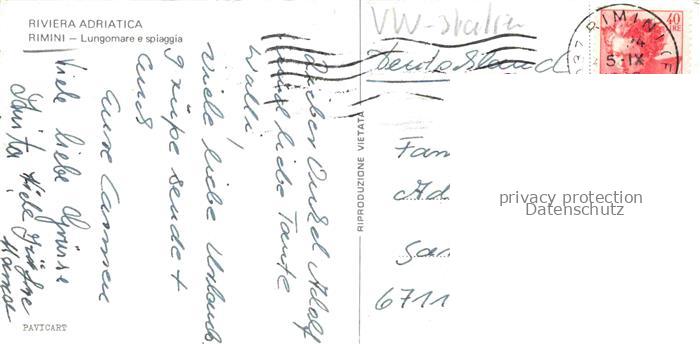 RIVIERA ADRIATICA
RIMINI – Lungomare e spiaggia
Lieber Onkel Adolf
und liebe Tante
Walli,
viele liebe Urlaubs
grüße sendet
aus
eure Carmen
Viele liebe Grüsse
Viele Grüße
PAVICART
RIPRODUZIONE VIETATA
VW-Italien
Deutschland
Fam
Ad
6711
RIMINI
5·IX
40
LIRE
privacy protection
Datenschutz